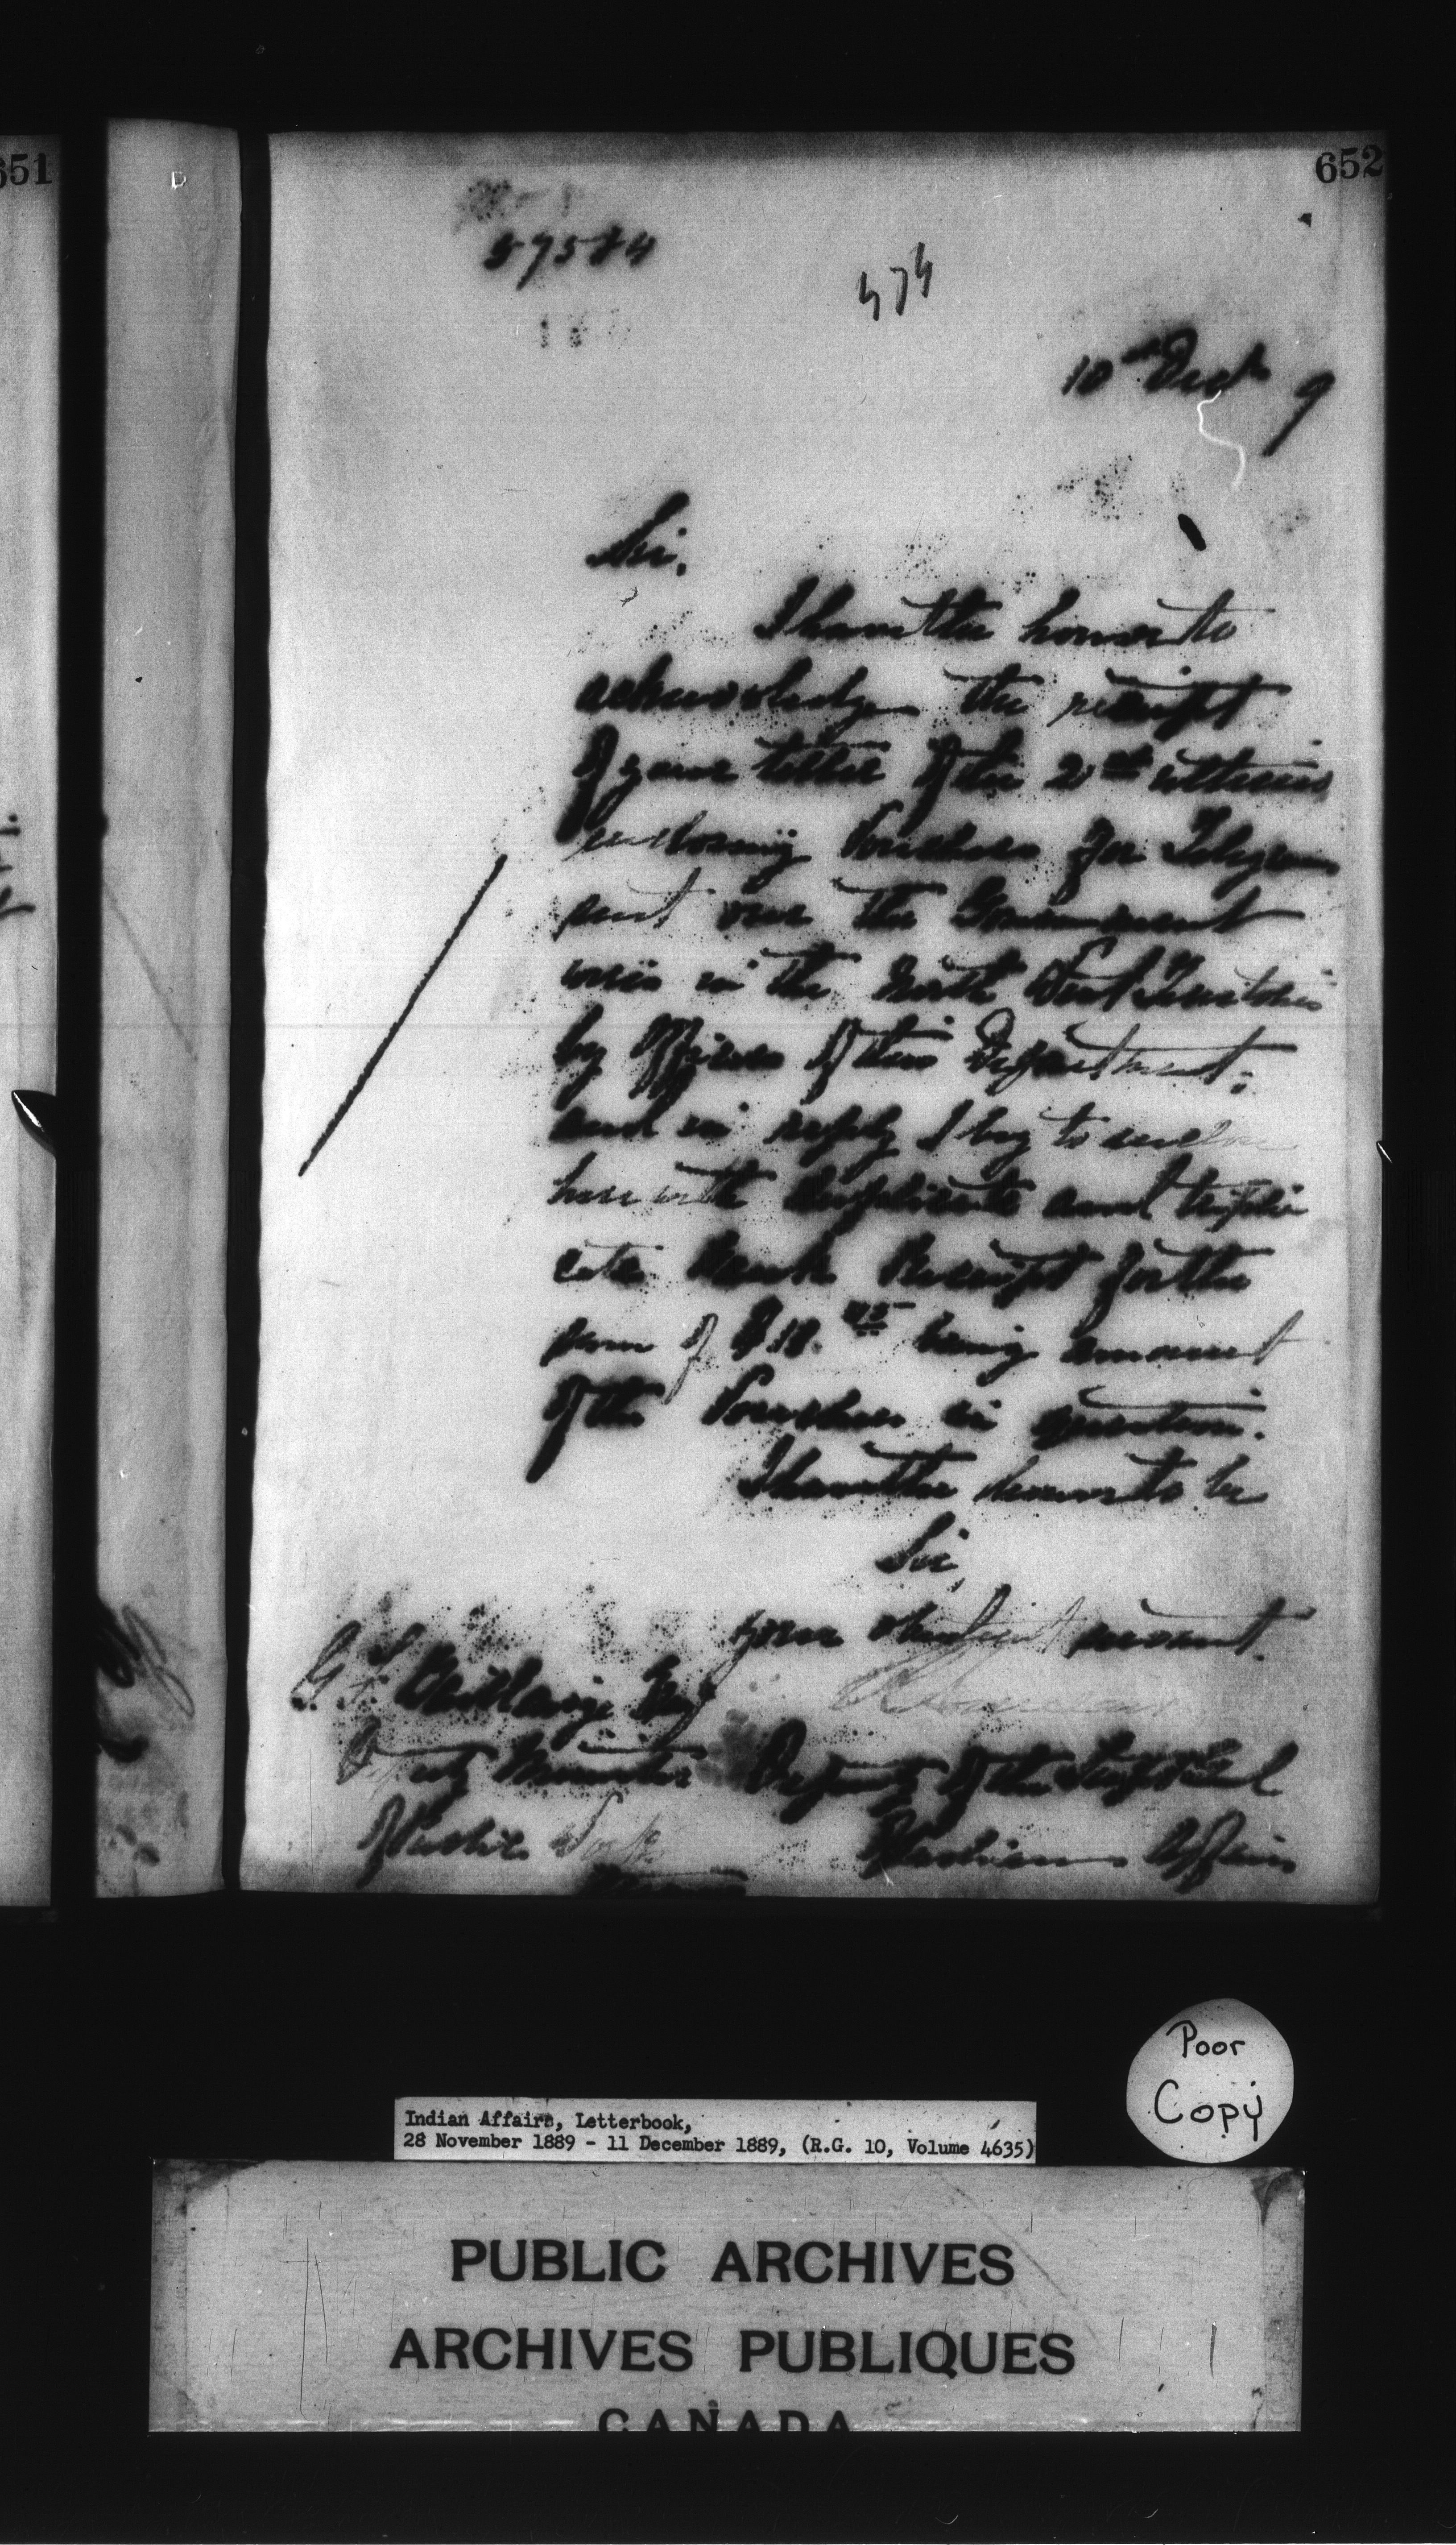 651
652
57584
474
10th Decr 9
Sir,
I have the honor to
acknowledge the receipt
of your letter of the 2nd ultimo
enclosing Vouchers for Telegrams
sent over the Government
wires in the North West Territories
by Officers of this Department;
and in reply I beg to enclose
herewith duplicate and tripli
cate Bank Receipt for the
sum of $18. being amount
of the Vouchers in question.
I have the honor to be
Sir,
Your obedient servant.
G. F. Baillairgé Esq
Deputy Minister Deputy of the Supt Genl
of Public Works of Indian Affairs
Poor
Copy
Indian Affairs, Letterbook,
28 November 1889 - 11 December 1889, (R.G. 10, Volume 4635)
PUBLIC ARCHIVES
ARCHIVES PUBLIQUES
CANADA